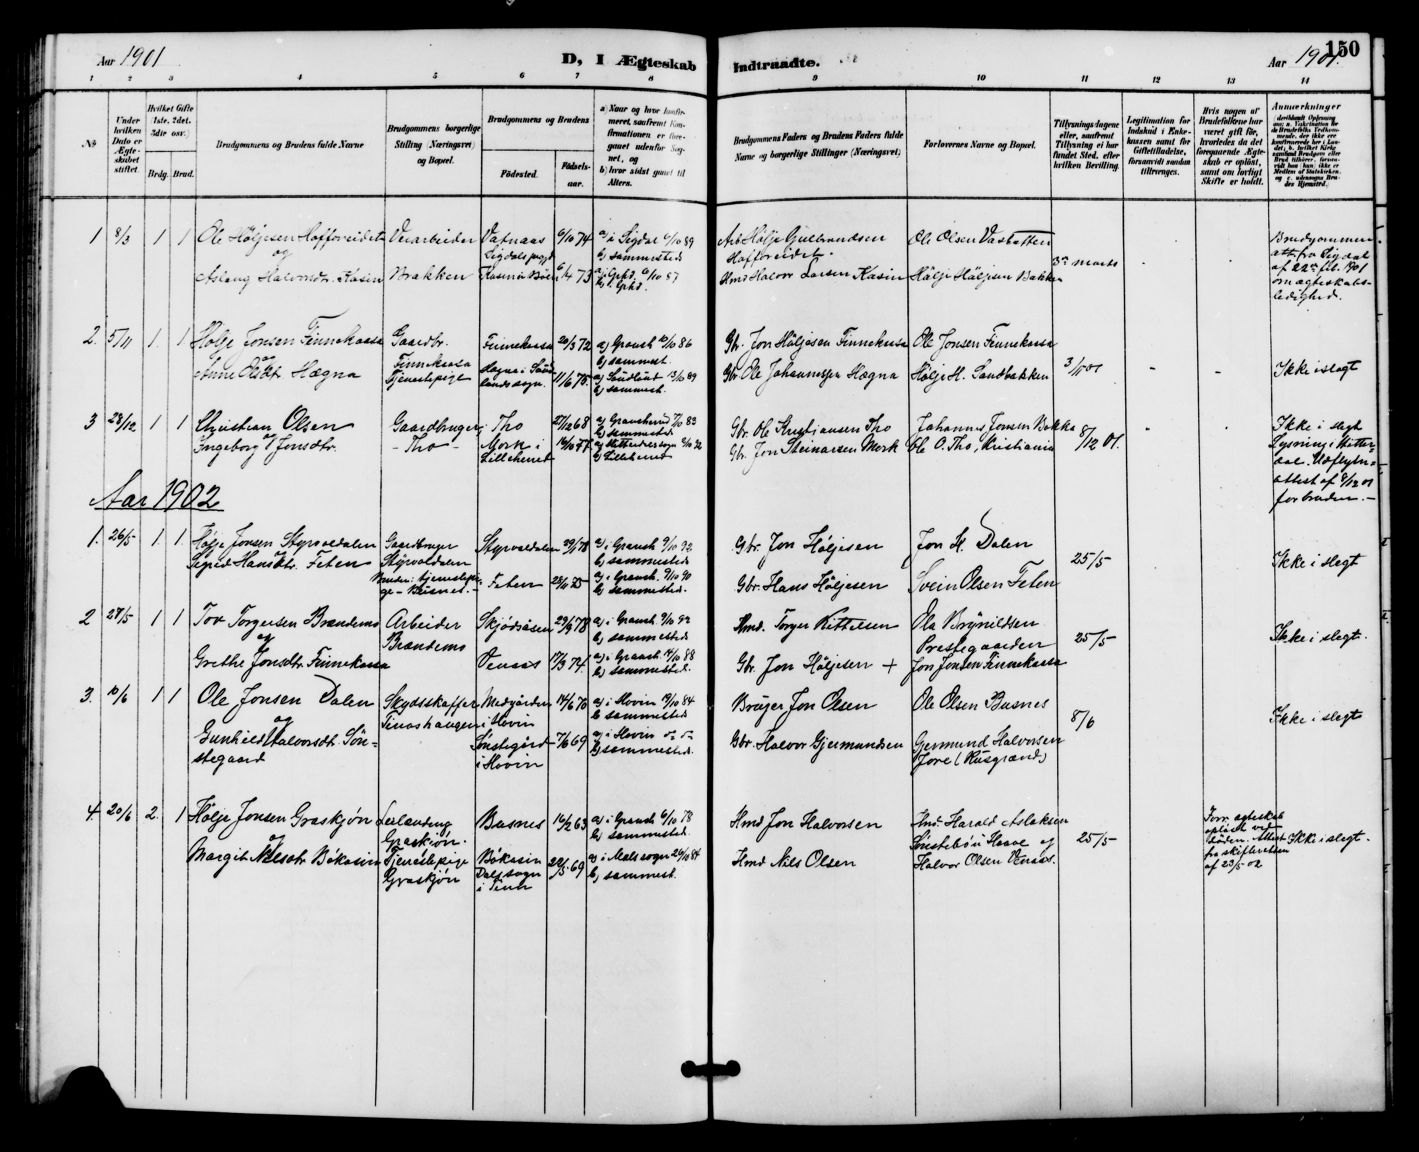 Aar 1901
D, I Ægteskab
Indtraadte.
Aar 1901.
150
1 2 3 4 5 6 7 8 9 10 11 12 13 14
No
Under hvilken Dato er Ægteskabet stiftet.
Hvilket Gifte (1ste, 2det, 3die osv.)
Brdg. Brud.
Brudgommens og Brudens fulde Navne
Brudgommens borgerlige Stilling (Næringsvei) og Bopæl.
Brudgommens og Brudens
Fødested.
Fødselsaar.
a) Naar og hvor konfirmeret, saafremt Konfirmationen er foregaaet udenfor Sognet, og
b) hvor sidst gaaet til Alters.
Brudgommens Faders og Brudens Faders fulde Navne og borgerlige Stillinger (Næringsvei)
Forlovernes Navne og Bopæl.
Tillysnings-dagene eller, saafremt Tillysning ei har fundet Sted, efter hvilken Bevilling.
Legitimation for Indskud i Enkekassen samt for Giftetilladelse, forsaavidt saadan tiltrænges.
Hvis nogen af Brudefolkene har været gift før, hvorledes da det foregaaende Ægteskab er opløst, samt om lovligt Skifte er holdt.
Anmærkninger
1 8/3 1 1
Ole Høljesen Hofforeidet
og
Aslaug Halvorsdtr. Kasin
Veiarbeider
Brakken
Vatnaas
Sigdals pgd
Kasin i Bøen
6/10 74
6/4 73
a) i Sigdal 6/10 89
b) sammesteds
Arb Hølje Gulbrandsen
Hofforeidet.
Hmd Halvor Larsen Kasin
Ole Olsen Vastaften
Hølje Høljesen Bakken
3die marts
Brudgommen
att. fra Sigdal
af 22de fb. 1901
om ægteskabs-
ledighed.
2. 5/11 1. 1
Hølje Jonsen Finnekaasa
og
Anne Olsdt Hægna
Gaardbr.
Finnekaasa
Tjenestepige
Finnekaasa
Hægna i Saud
lands sogn.
20/3 72
11/6 75.
a) Gransh 10/10 86
b) sammest.
a) Saudland 13/10 89
b) sammest.
Gbr. Jon Høljesen Finnekaasa
Gbr Ole Johannessen Hægna
Ole Jonsen Finnekaasa
Hølje H. Sandbakken
3/11 01
Ikke i slegt
3 28/12 1 1
Christian Olsen
og
Ingeborg Jonsdtr.
Gaardbruger
- Tho -
Tho
Mork i
Lilleherred
27/12 68
16/10 77
a) Gransherred 7/10 83
b) sammesteds
b) Lilleherred
Gbr. Ole Kristiansen Tho
Gbr. Jon Steinarsen Mork
Johannes Jonsen Bakka
Ole O. Tho, Kristiania
8/12 01.
Ikke i slegt
Lysning i Hitter-
dal. Udflytn=
attest af 9/12 01
for bruden. -
Aar 1902
1. 26/5 1 1.
Hølje Jonsen Styrvoldalen
Sigrid Hansdtr. Feten
Gaardbruger
Styrvoldalen
Bruden: tjenestepi-
ge - Busnes. -
Styrvoldalen
Feten
29/1 78
a) i Gransh 9/10 92
b) sammesteds
a) i Gransh. 9/10 90
b) sammesteds.
Gbr. Jon Høljesen
Gbr. Hans Høljesen
Jon H. Dalen
Svein Olsen Feten
25/5
Ikke i slegt
2 28/5 1 1
Tov Torgersen Brændemo
og
Grethe Jonsdtr. Finnekaasa
Arbeider
Brændemo
Skjødsåsen
Venaas
29/9 78
17/3 74.
a) i Gransh 9/10 92
b) sammesteds
a) i Gransh. 14/10 88
b) sammesteds.
Hmd. Torger Kittelsen
Gbr. Jon Høljesen +
Ola Brynildsen
Prestegaarden
Jon Jonsen Finnekaasa
25/5
Ikke i slegt.
3. 10/6 1 1
Ole Jonsen Dalen
og
Gunhild Halvorsdtr. Søn-
stegaard
Skydsskaffer
Tinoshaugen
Medgården
i Hovin
Sønstegård
i Hovin
14/6 70
7/6 69
a) i Hovin 19/10 84
b) sammesteds
a) i Hovin do do
b) sammesteds.
Bruger Jon Olsen
Gbr. Halvor Gjermundsen
Ole Olsen Busnes
Gjermund Halvorsen
Jore (Rusgrænd)
8/6
Ikke i slegt
4. 20/6 2. 1
Hølje Jonsen Graskjøn
og
Margit Nilsdtr Bøkasin
Leilænding
Graskjøn.
Tjenestepige
Graskjøn
Busnes
Bøkasin
Dals sogn
i Tinn
16/2 63
22/5 69
a) i Gransh 6/10 78
b) sammesteds.
a) i Mæls sogn 26/10 84
b) sammest.
Hmd Jon Halvorsen
Hmd Nils Olsen
Hmd. Harald Aslaksen
Sønstebøn Haave og
Halvor Olsen Venaas.
25/5
Forr. egteskab
opløst ved
døden. Attest
fra skifteretten
af 23/5 02
Ikke i slegt.